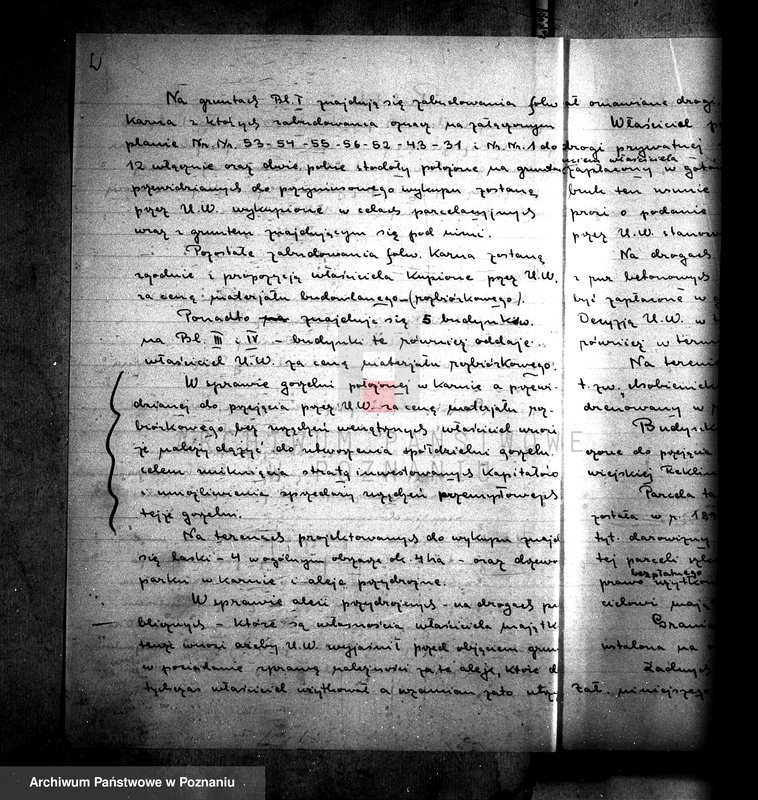 Na gruntach Bl. I znajdują się zabudowania folw.
Karna z których zabudowania opacz na załączonym
planie Nr. Nr. 53-54-55-56-52-43-31 i Nr. Nr. 1 do
12 włącznie oraz dwie polne stodoły położone na gruntach
przewidzianych do przymusowego wykupu zostaną
przez U.W. wykupione w celach parcelacyjnych
wraz z gruntem znajdującym się pod nimi.
Pozostałe zabudowania folw. Karna zostaną
zgodnie z propozycją właściciela kupione przez U.W.
za cenę materjału budowlanego (rozbiórkowego).
Ponadto znajduje się 5 budynków
na Bl. III i IV - budynki te również oddaje
właściciel U.W. za cenę materjału rozbiórkowego.
W sprawie gorzelni położonej w Karnie a przewi-
dzianej do przejęcia przez U.W. za cenę materjału roz-
biórkowego bez urządzeń wewnętrznych właściciel wnosi
że należy dążyć do utworzenia spółdzielni gorzeln.
celem uniknięcia straty inwestowanych kapitałów
i umożliwienia sprzedaży urządzeń przemysłowych
tejże gorzelni.
Na terenach projektowanych do wykupu znajd
się laski - 4 w ogólnym obszarze ok. 4 ha - oraz drzewo
parku w Karnie i aleje przydrożne.
W sprawie alei przydrożnych - na drogach pu
blicznych - które są własnością właściciela majątk
tenże wnosi ażeby U.W. wyjaśnił przed objęciem grun
w posiadanie sprawę należności za te aleje, które d
tychczas właściciel użytkował a wzamian za to
omawiane drogi
Właściciel
drogi prywatnej
właściciela
zapłacony w
bruk ten
prosi o podanie
przez U.W.
Na drogach
z rur betonowych
być zapłacone w
Decyzją U.W. w
również w
Na tereni
t. zw.
drenowany w
Budynki
do przejęcia
wiejskiej
Parcela ta
została w r. 189
tyt. darowizny
tej parceli
bezpłatnego
prawo użytkow
cielowi mają
Grani
ustalona na
Żadnych
Zał. niniejszego
ARCHIWUM PAŃSTWOWE
W POZNANIU
Archiwum Państwowe w Poznaniu